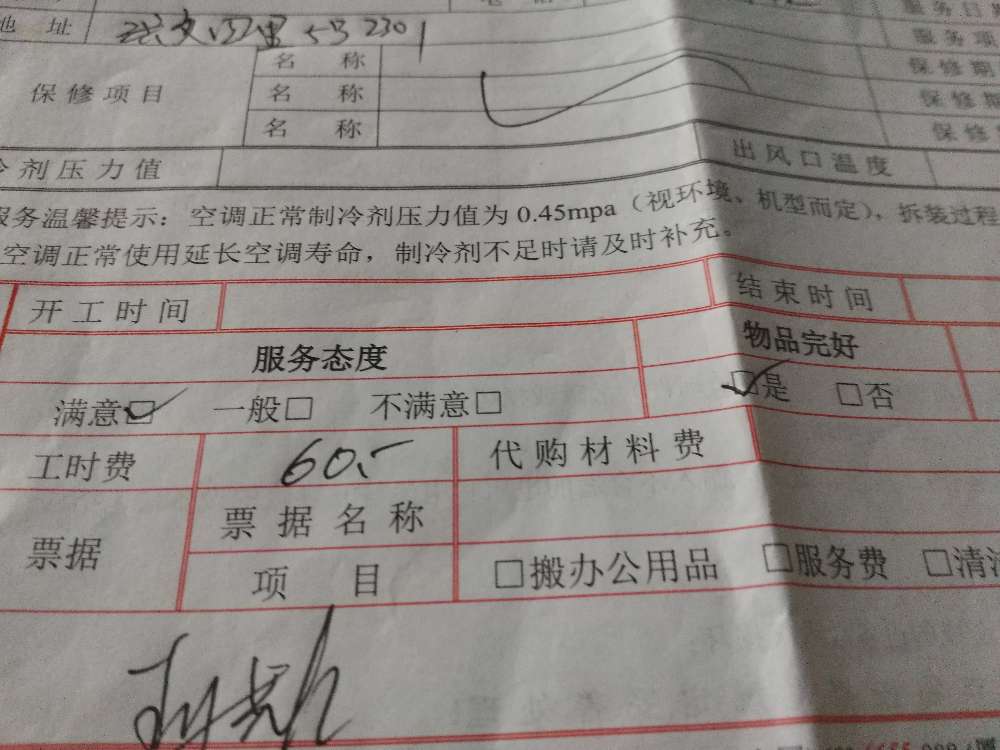 地 址 四里5号2301 服务项
名 称 保修期
保修项目 名 称 保修期
名 称 保修
冷剂压力值 出风口温度
服务温馨提示：空调正常制冷剂压力值为0.45mpa（视环境、机型而定），拆装过程
空调正常使用延长空调寿命，制冷剂不足时请及时补充。
开工时间 结束时间
服务态度 物品完好
满意☑ 一般□ 不满意□ ☑是 □否
工时费 60.- 代购材料费
票据 票据名称
项 目 □搬办公用品 □服务费 □清